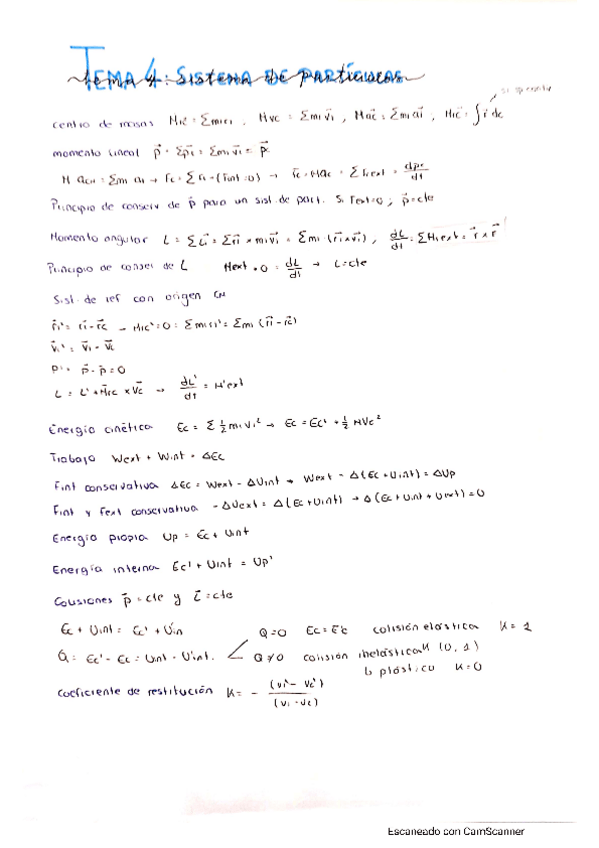 TEMA 4: SISTEMA DE PARTÍCULAS
centro de masas M r⃗c = Σmi ri , M vc = Σmi v⃗i , M a⃗c = Σmi a⃗i , M r⃗c = ∫ r⃗ dc
momento lineal p⃗ = Σp⃗i = Σmi v⃗i = p⃗c
M acm = Σmi ai → Fc = Σ Fi = (Fint = 0) → Fc = Mac = ΣFiext = dpc/dt
Principio de conserv de p⃗ para un sist. de part. Si Fext=0; p⃗=cte
Momento angular L = ΣLi = Σr⃗i × mi v⃗i = Σmi (r⃗i × v⃗i) , dL/dt = ΣMext = r⃗ × F⃗
Principio de conser de L Mext = 0 = dL/dt → L=cte
Sist. de ref con origen CM
r⃗i' = r⃗i - r⃗c → M rc' = 0 = Σmi ri' = Σmi (r⃗i - r⃗c)
v⃗i' = v⃗i - v⃗c
p' = p⃗ - p⃗ = 0
L = L' + M rc × v⃗c → dL'/dt = M'ext
Energía cinética Ec = Σ ½ mi vi² → Ec = Ec' + ½ MVc²
Trabajo Wext + Wint = ΔEc
Fint conservativa ΔEc = Wext - ΔUint → Wext = Δ(Ec + Uint) = ΔUp
Fint y Fext conservativa -ΔUext = Δ(Ec + Uint) → Δ(Ec + Uint + Uext) = 0
Energía propia Up = Ec + Uint
Energía interna Ec' + Uint = Up'
Colisiones p⃗ = cte y L⃗ = cte
Ec + Uint = Ec' + U'in Q=0 Ec = E'c colisión elástica K = 1
Q = Ec' - Ec = Uint - U'int. Q≠0 colisión inelástica K (0, 1)
↳ plástico K=0
coeficiente de restitución K = - (vi' - vc') / (vi - vc)
Escaneado con CamScanner